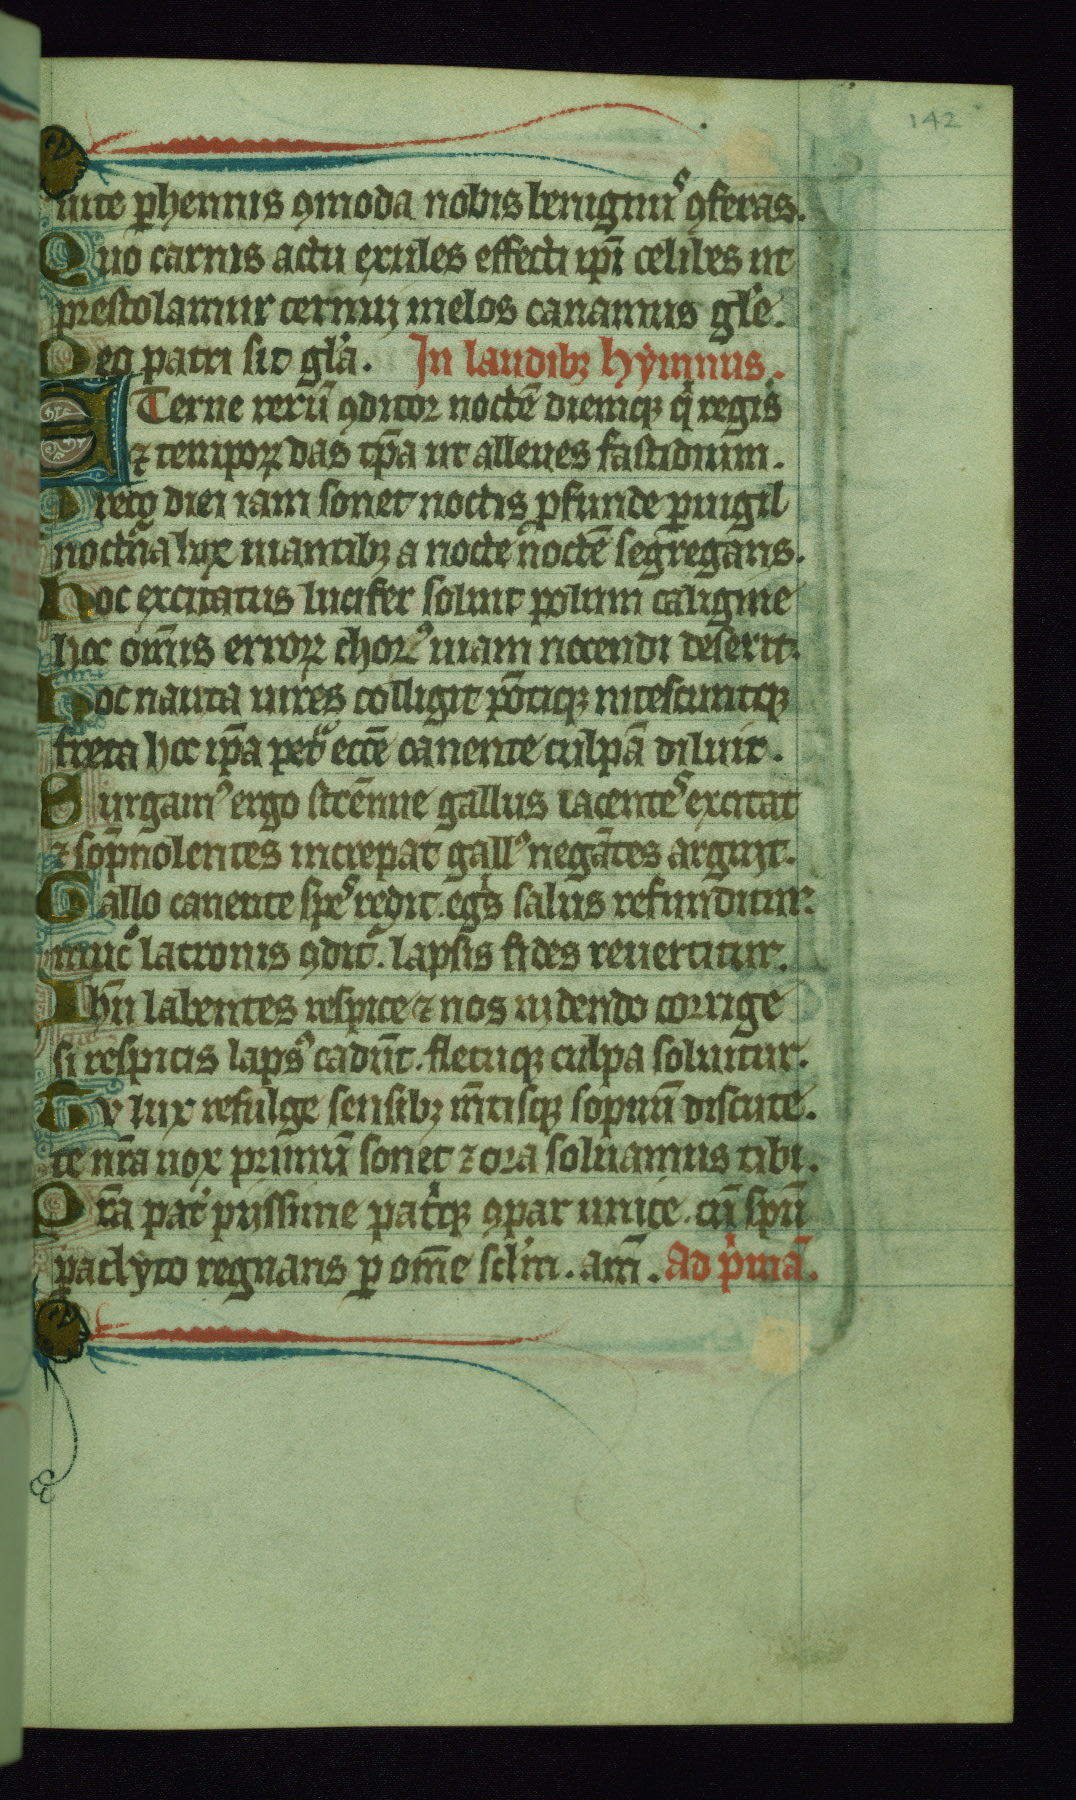 142
uite ꝑhennis ꝯmoda nobis benignuˢ ꝯferas.
Quo carnis actu exules effecti ip̄i celibes ut
prestolamur cernui melos canamus gl̄e.
Deo patri sit gl̄a. In laudibꝫ hẏmnus.
ETerne rerū ꝯditor noctē diemqꝫ qⁱ regis
⁊ tempoꝝ das tp̄a ut alleues fastidium.
Preco diei iam sonet noctis ꝓfunde ꝑuigil
noctn̄a lux uiantibꝫ a nocte noctē segregans.
Hoc excitatus lucifer soluit polum caligine
hoc om̄is erroꝝ chorꝰ uiam nocendi deserit.
Hoc nauta uires colligit pōtiqꝫ mitescuntqꝫ
freta hoc ip̄a petͦ ecc̄e canente culpā diluit.
Surgamꝰ ergo strēnue gallus iacenteˢ excitat
⁊ sop̄nolentes increpat gallꝰ negātes arguit.
Gallo canente speˢ redit. egⁱs salus refunditur
mucͦ latronis ꝯdit᷑. lapsis fides reuertitur.
Ihū labentes respice ⁊ nos uidendo corrige
si respicis lapsꝰ cadūt. fletuqꝫ culpa soluitur.
Tv lux refulge sensibꝫ m̄tisqꝫ sopnū discute.
te nr̄a uox primū sonet ⁊ ora soluamus tibi.
Pr̄a pat᷑ pijssime pat̄qꝫ ꝯpar unice. cū spū
paclẏto regnans ꝑ om̄e sclm̄. am̄. Ad pⁱmā.